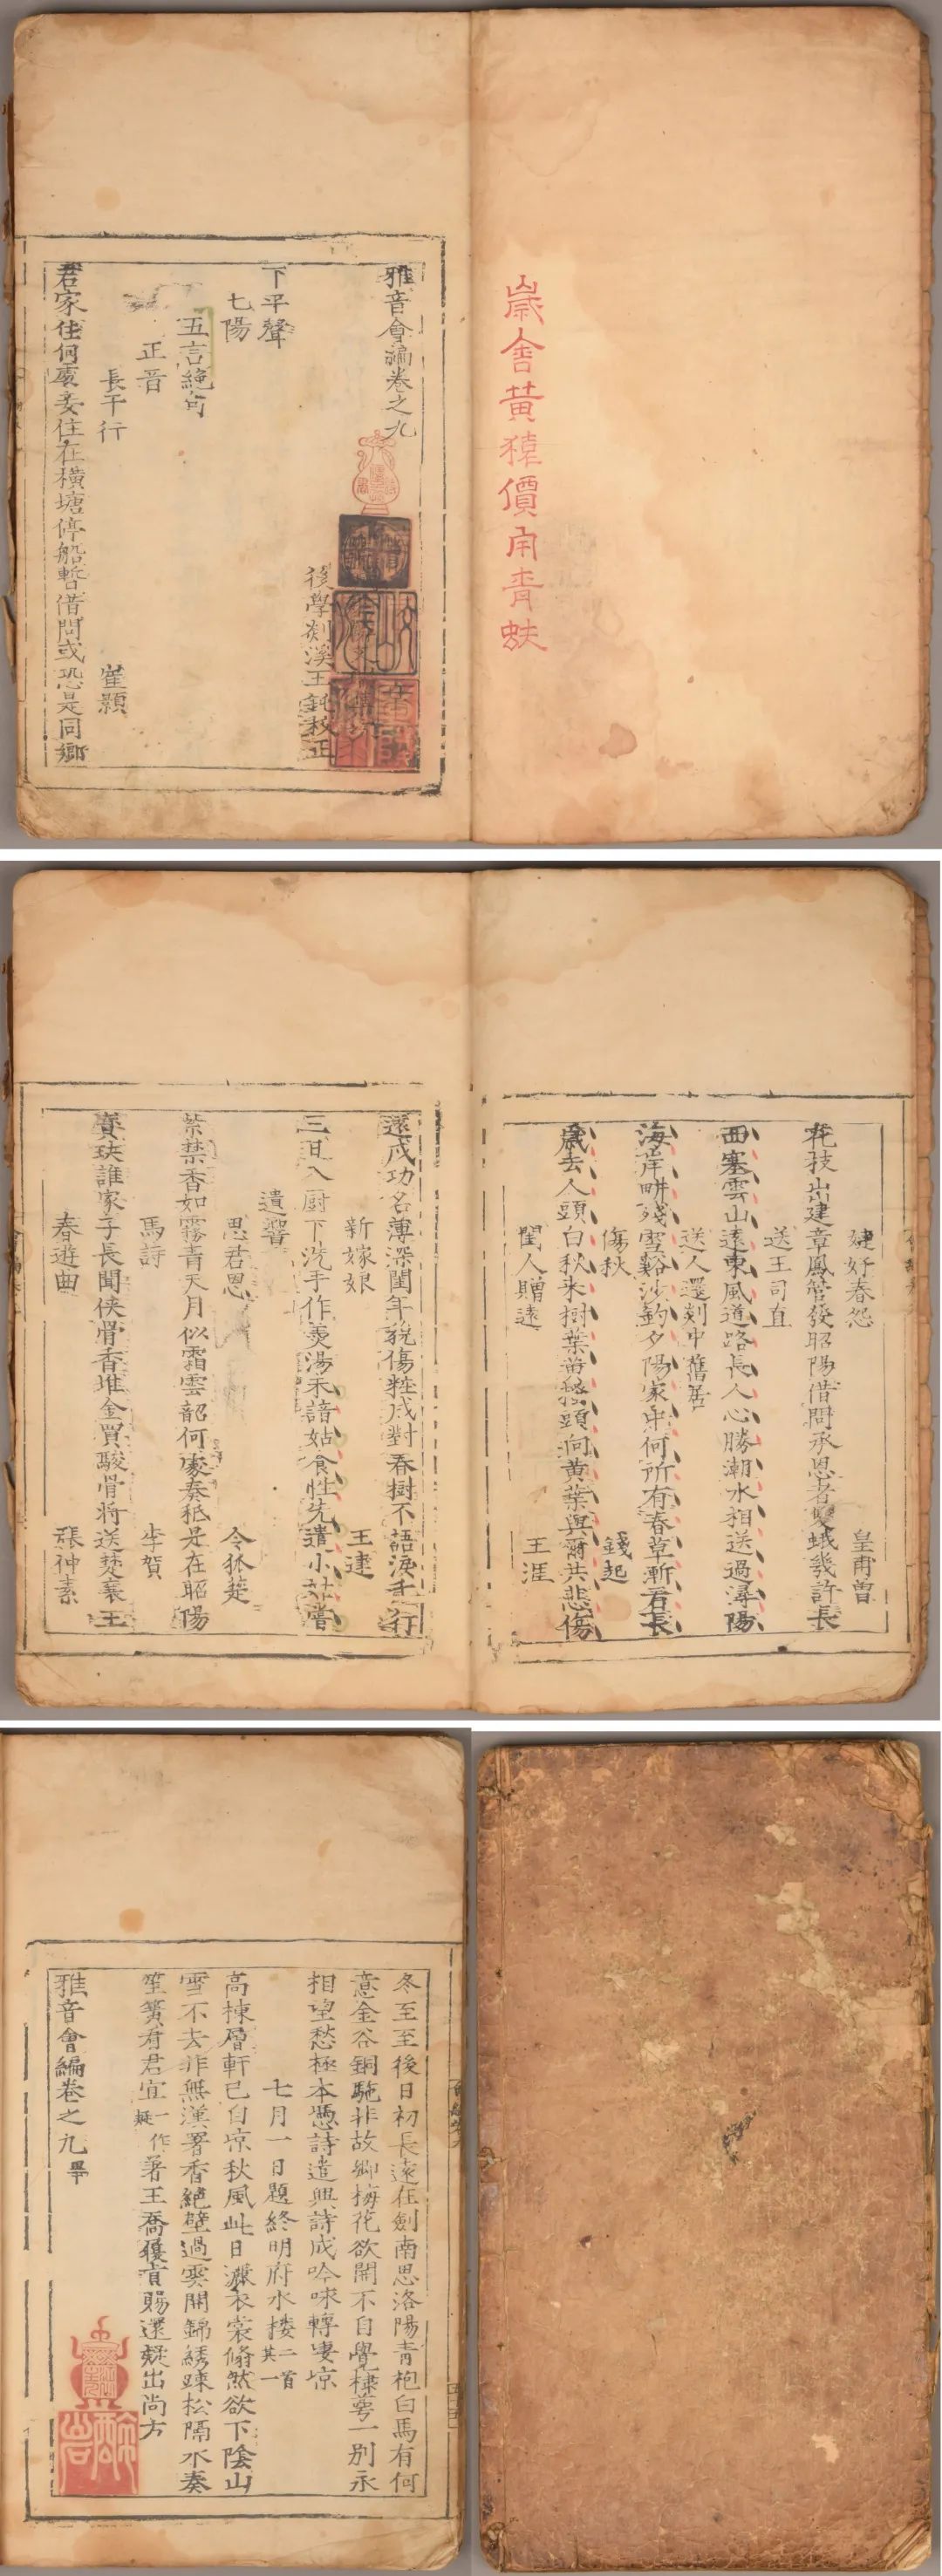 雅音會編卷之九
後學剡溪王鈍校正
下平聲
七陽
五言絶句
正音
長干行
崔顥
君家住何處妾住在橫塘停船暫借問或恐是同鄉
婕妤春怨
皇甫曾
花枝出建章鳳管發昭陽借問承恩者雙蛾幾許長
送王司直
西塞雲山遠東風道路長人心勝潮水相送過潯陽
送人還剡中舊居
海岸畊殘雪谿沙釣夕陽家中何所有春草漸看長
傷秋
錢起
歲去人頭白秋來樹葉黄搔頭向黄葉與爾共悲傷
閨人贈遠
王涯
遠戍功名薄深閨年貌傷粧成對春樹不語淚千行
新嫁娘
王建
三日入厨下洗手作羹湯未諳姑食性先遣小姑嘗
遺響
思君恩
令狐楚
紫禁香如霧青天月似霜雲韶何處奏秪是在昭陽
馬詩
李賀
寶玦誰家子長聞俠骨香堆金買駿骨將送楚襄王
春遊曲
張仲素
冬至至後日初長遠在劍南思洛陽青袍白馬有何
意金谷銅駞非故鄉梅花欲開不自覺棣萼一别永
相望愁極本憑詩遣興詩成吟咏轉凄凉
七月一日題終明府水樓二首其一
高棟層軒已自凉秋風此日灑衣裳翛然欲下陰山
雪不去非無漢署香絶壁過雲開錦綉疎松隔水奏
笙簧看君宜一作疑著王喬履真賜還疑出尚方
雅音會編卷之九畢